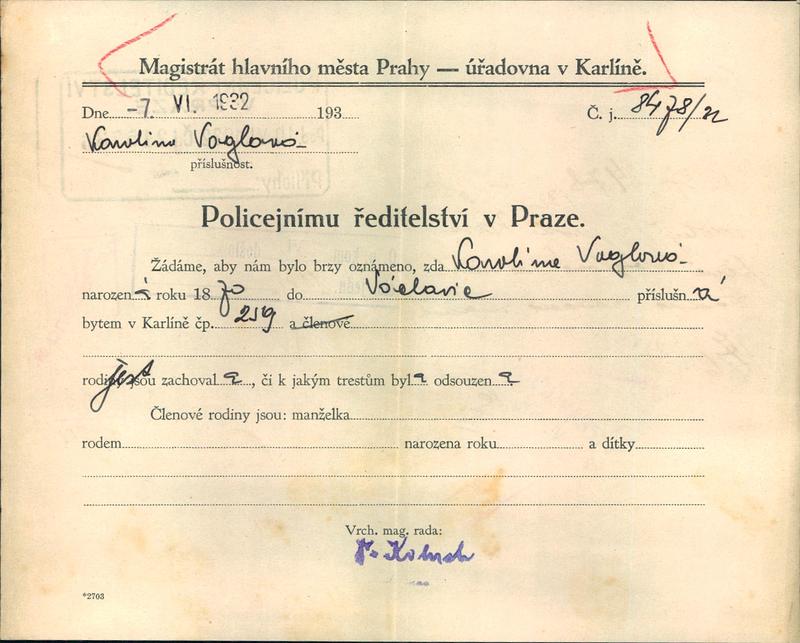 Magistrát hlavního města Prahy — úřadovna v Karlíně.
Dne -7. VI. 1932 193 Č. j. 8478/22
Karolina Voglová
příslušnost.
Policejnímu ředitelství v Praze.
Žádáme, aby nám bylo brzy oznámeno, zda Karolina Voglová
narozená roku 1870 do příslušná
bytem v Karlíně čp. 259 a členové
rodiny jsou jest zachovala, či k jakým trestům byla odsouzena
Členové rodiny jsou: manželka
rodem narozena roku a dítky
Vrch. mag. rada:
*2703